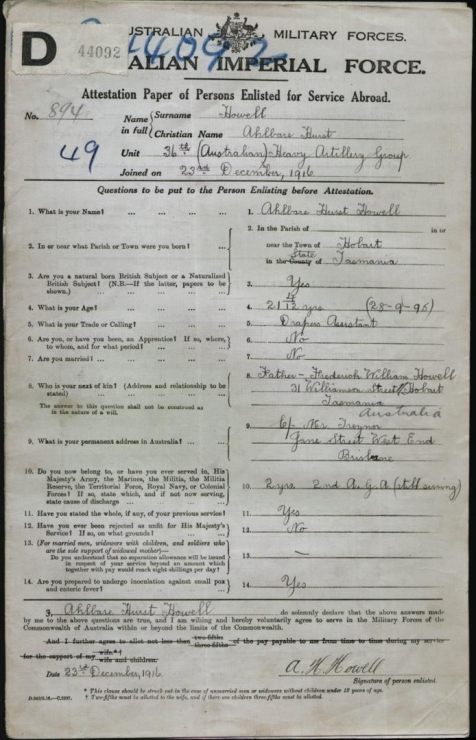 D
44092
44092
AUSTRALIAN MILITARY FORCES.
AUSTRALIAN IMPERIAL FORCE.
Attestation Paper of Persons Enlisted for Service Abroad.
No. 894
49
Name in full { Surname Howell
Christian Name Ahlbare Hurst
Unit 36th (Australian) Heavy Artillery Group
Joined on 23rd December, 1916
Questions to be put to the Person Enlisting before Attestation.
1. What is your Name? ... ... ... ... 1. Ahlbare Hurst Howell
2. In or near what Parish or Town were you born? ... 2. In the Parish of in or
near the Town of Hobart
in the County State of Tasmania
3. Are you a natural born British Subject or a Naturalised
British Subject? (N.B.—If the latter, papers to be
shown.) ... ... ... ... 3. Yes
4. What is your Age? ... ... ... ... 4. 21 yrs (28-9-95)
5. What is your Trade or Calling? ... ... ... 5. Drapers Assistant
6. Are you, or have you been, an Apprentice? If so, where,
to whom, and for what period? ... ... ... 6. No
7. Are you married? ... ... ... ... 7. No
8. Who is your next of kin? (Address and relationship to be
stated) ... ... ... ...
The answer to this question shall not be construed as
in the nature of a will.
8. Father - Frederick William Howell
31 Williamson Street Hobart
Tasmania
Australia
9. What is your permanent address in Australia? ... ...
9. C/- Mr. Treynor
Jane Street West End
Brisbane
10. Do you now belong to, or have you ever served in, His
Majesty's Army, the Marines, the Militia, the Militia
Reserve, the Territorial Force, Royal Navy, or Colonial
Forces? If so, state which, and if not now serving,
state cause of discharge ... ... ...
10. 2 yrs. 2nd A.G.A (still serving)
11. Have you stated the whole, if any, of your previous service? 11. Yes
12. Have you ever been rejected as unfit for His Majesty's
Service? If so, on what grounds? ... ... 12. No
13. (For married men, widowers with children, and soldiers who
are the sole support of widowed mother)—
Do you understand that no separation allowance will be issued
in respect of your service beyond an amount which
together with pay would reach eight shillings per day? 13. —
14. Are you prepared to undergo inoculation against small pox
and enteric fever? ... ... ... 14. Yes
I, Ahlbare Hurst Howell do solemnly declare that the above answers made
by me to the above questions are true, and I am willing and hereby voluntarily agree to serve in the Military Forces of the
Commonwealth of Australia within or beyond the limits of the Commonwealth.
And I further agree to allot not less than two-fifths three-fifths of the pay payable to me from time to time during my service
for the support of my wife.* wife and children.
Date 23rd December, 1916
A. H. Howell
Signature of person enlisted.
* This clause should be struck out in the case of unmarried men or widowers without children under 18 years of age.
† Two-fifths must be allotted to the wife, and if there are children three-fifths must be allotted.